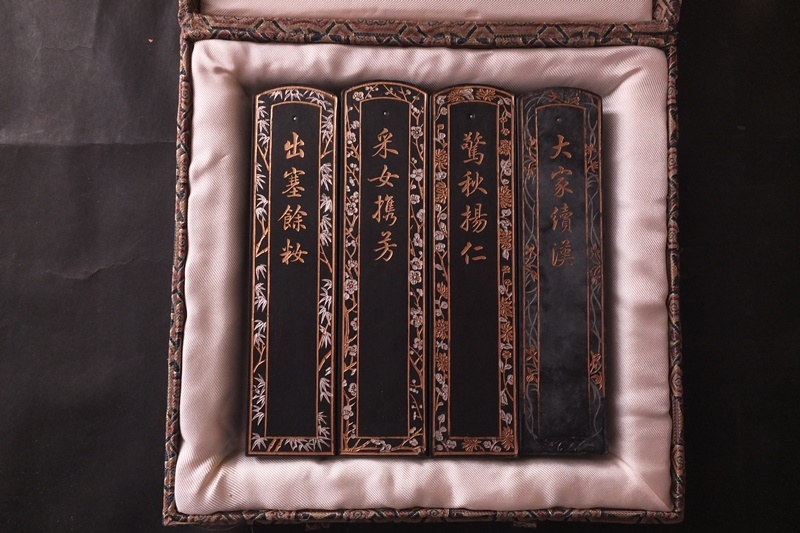 大家續漢
驚秋揚仁
采女携芳
出塞餘籹